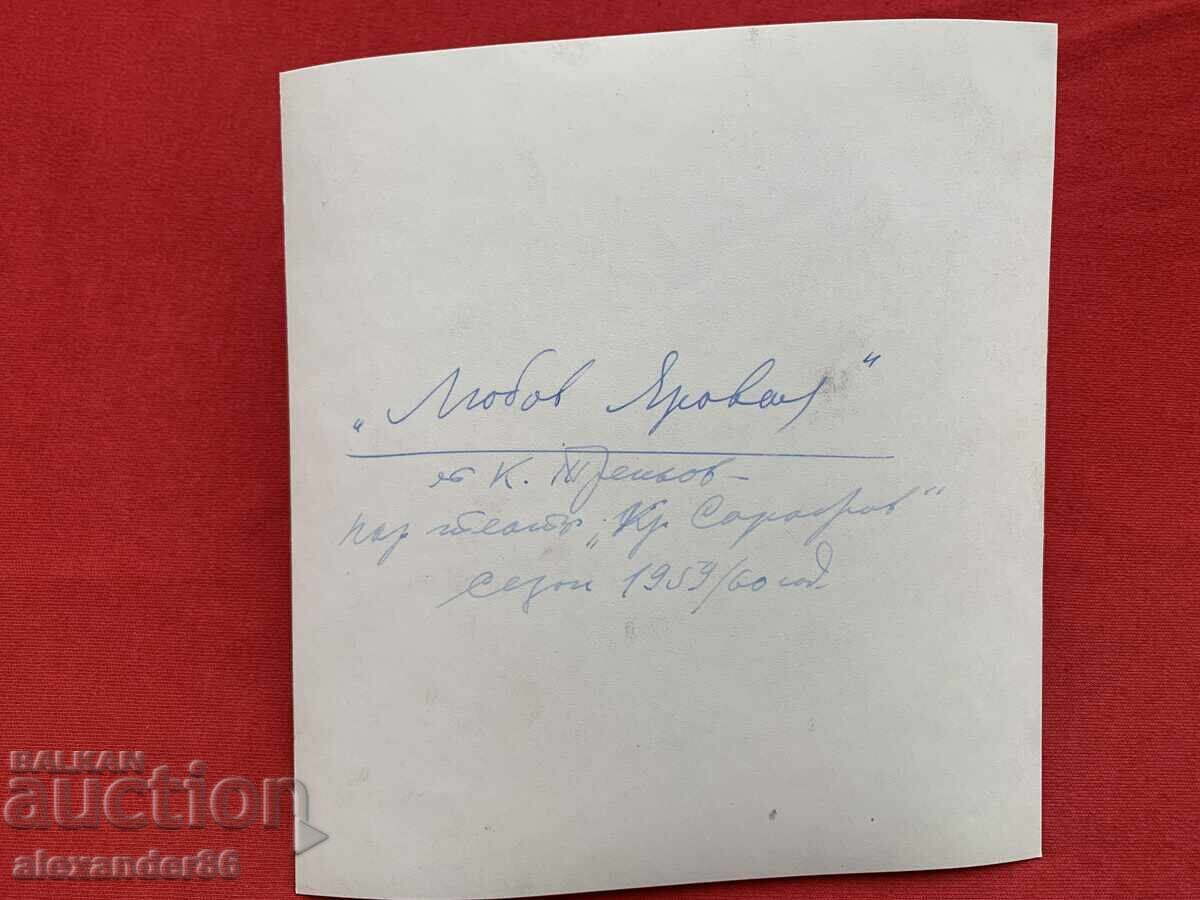 „Любов Яровая"
от К. Треньов -
нар театър „Кр Сарафов"
сезон 1959/60 год
BALKAN
auction
alexander86